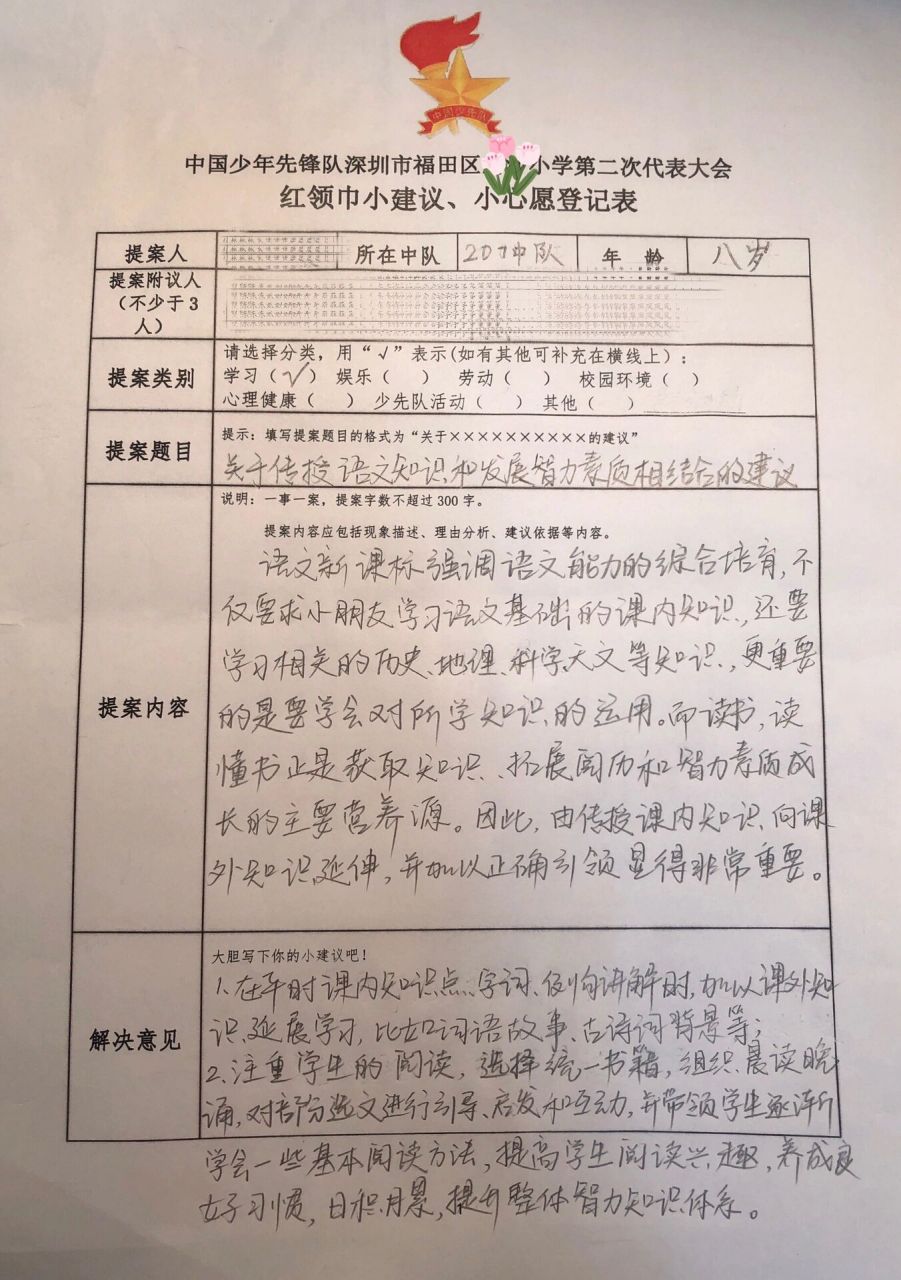 中国少先队
中国少年先锋队深圳市福田区小学第二次代表大会
红领巾小建议、小心愿登记表
提案人 所在中队 207中队 年 龄 八岁
提案附议人
（不少于3
人）
提案类别
请选择分类，用“√”表示(如有其他可补充在横线上)：
学习（√） 娱乐（ ） 劳动（ ） 校园环境（ ）
心理健康（ ） 少先队活动（ ） 其他（ ）
提案题目
提示：填写提案题目的格式为“关于××××××××××的建议”
关于传授语文知识和发展智力素质相结合的建议
提案内容
说明：一事一案，提案字数不超过300字。
提案内容应包括现象描述、理由分析、建议依据等内容。
语文新课标强调语文能力的综合培育，不
仅要求小朋友学习语文基础的课内知识，还要
学习相关的历史、地理、科学、天文等知识，更重要
的是要学会对所学知识的运用。而读书，读
懂书正是获取知识、拓展阅历和智力素质成
长的主要营养源。因此，由传授课内知识向课
外知识延伸，并加以正确引领显得非常重要。
解决意见
大胆写下你的小建议吧！
1.在平时课内知识点、字词、例句讲解时，加以课外知
识延展学习，比如词语故事、古诗词背景等；
2.注重学生的阅读，选择统一书籍，组织晨读晚
诵，对部分选文进行引导、启发和互动，并带领学生逐渐
学会一些基本阅读方法，提高学生阅读兴趣，养成良
好习惯，日积月累，提升整体智力知识体系。